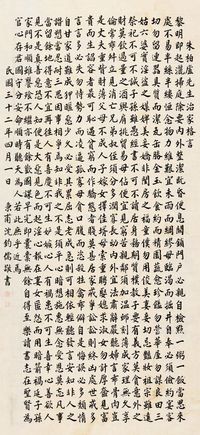 朱柏廬先生治家格言
黎明即起灑掃庭除要內外整潔既昏便息關鎖門戶必親自檢點一粥一飯當思來
處不易半絲半縷恆念物力維艱宜未雨而綢繆毋臨渴而掘井自奉必須儉約宴客
切勿留連器具質而潔瓦缶勝金玉飲食約而精園蔬愈珍饈勿營華屋勿謀良田三
姑六婆實淫盜之媒婢美妾嬌非閨房之福童僕勿用俊美妻妾切忌豔妝祖宗雖遠
祭祀不可不誠子孫雖愚經書不可不讀居身務期質樸教子要有義方莫貪意外之
財莫飲過量之酒與肩挑貿易毋佔便宜見窮苦親鄰須加溫恤刻薄成家理無久享
倫常乖舛立見消亡兄弟叔姪須分多潤寡長幼內外宜法肅辭嚴聽婦言乖骨肉豈是丈夫重
資財薄父母不成人子嫁女擇佳婿毋索重聘娶媳求淑女勿計厚奩見富
貴而生諂容者最可恥遇貧窮而作驕態者賤莫甚居家戒爭訟訟則終凶處世戒多
言言多必失勿恃勢力而凌逼孤寡毋貪口腹而恣殺生禽乖僻自是悔誤必多頹惰
自甘家道難成狎暱惡少久必受其累屈志老成急則可相依輕聽發言安知非人之譖愬當忍耐三思因事相爭焉知非我之不是須平心暗想施惠無念受恩莫忘凡事
當留餘地得意不宜再往人有喜慶不可生妒忌心人有禍患不可生喜幸心善欲人
見不是真善惡恐人知便是大惡見色而起淫心報在妻女匿怨而用暗箭禍延子孫
家門和順雖饔飧不繼亦有餘歡國課早完即囊橐無餘自得至樂讀書志在聖賢為
官心存君國守分安命順時聽天為人若此庶乎近焉
民國三十二年四月一日 秉甫沈鈞儒敬書